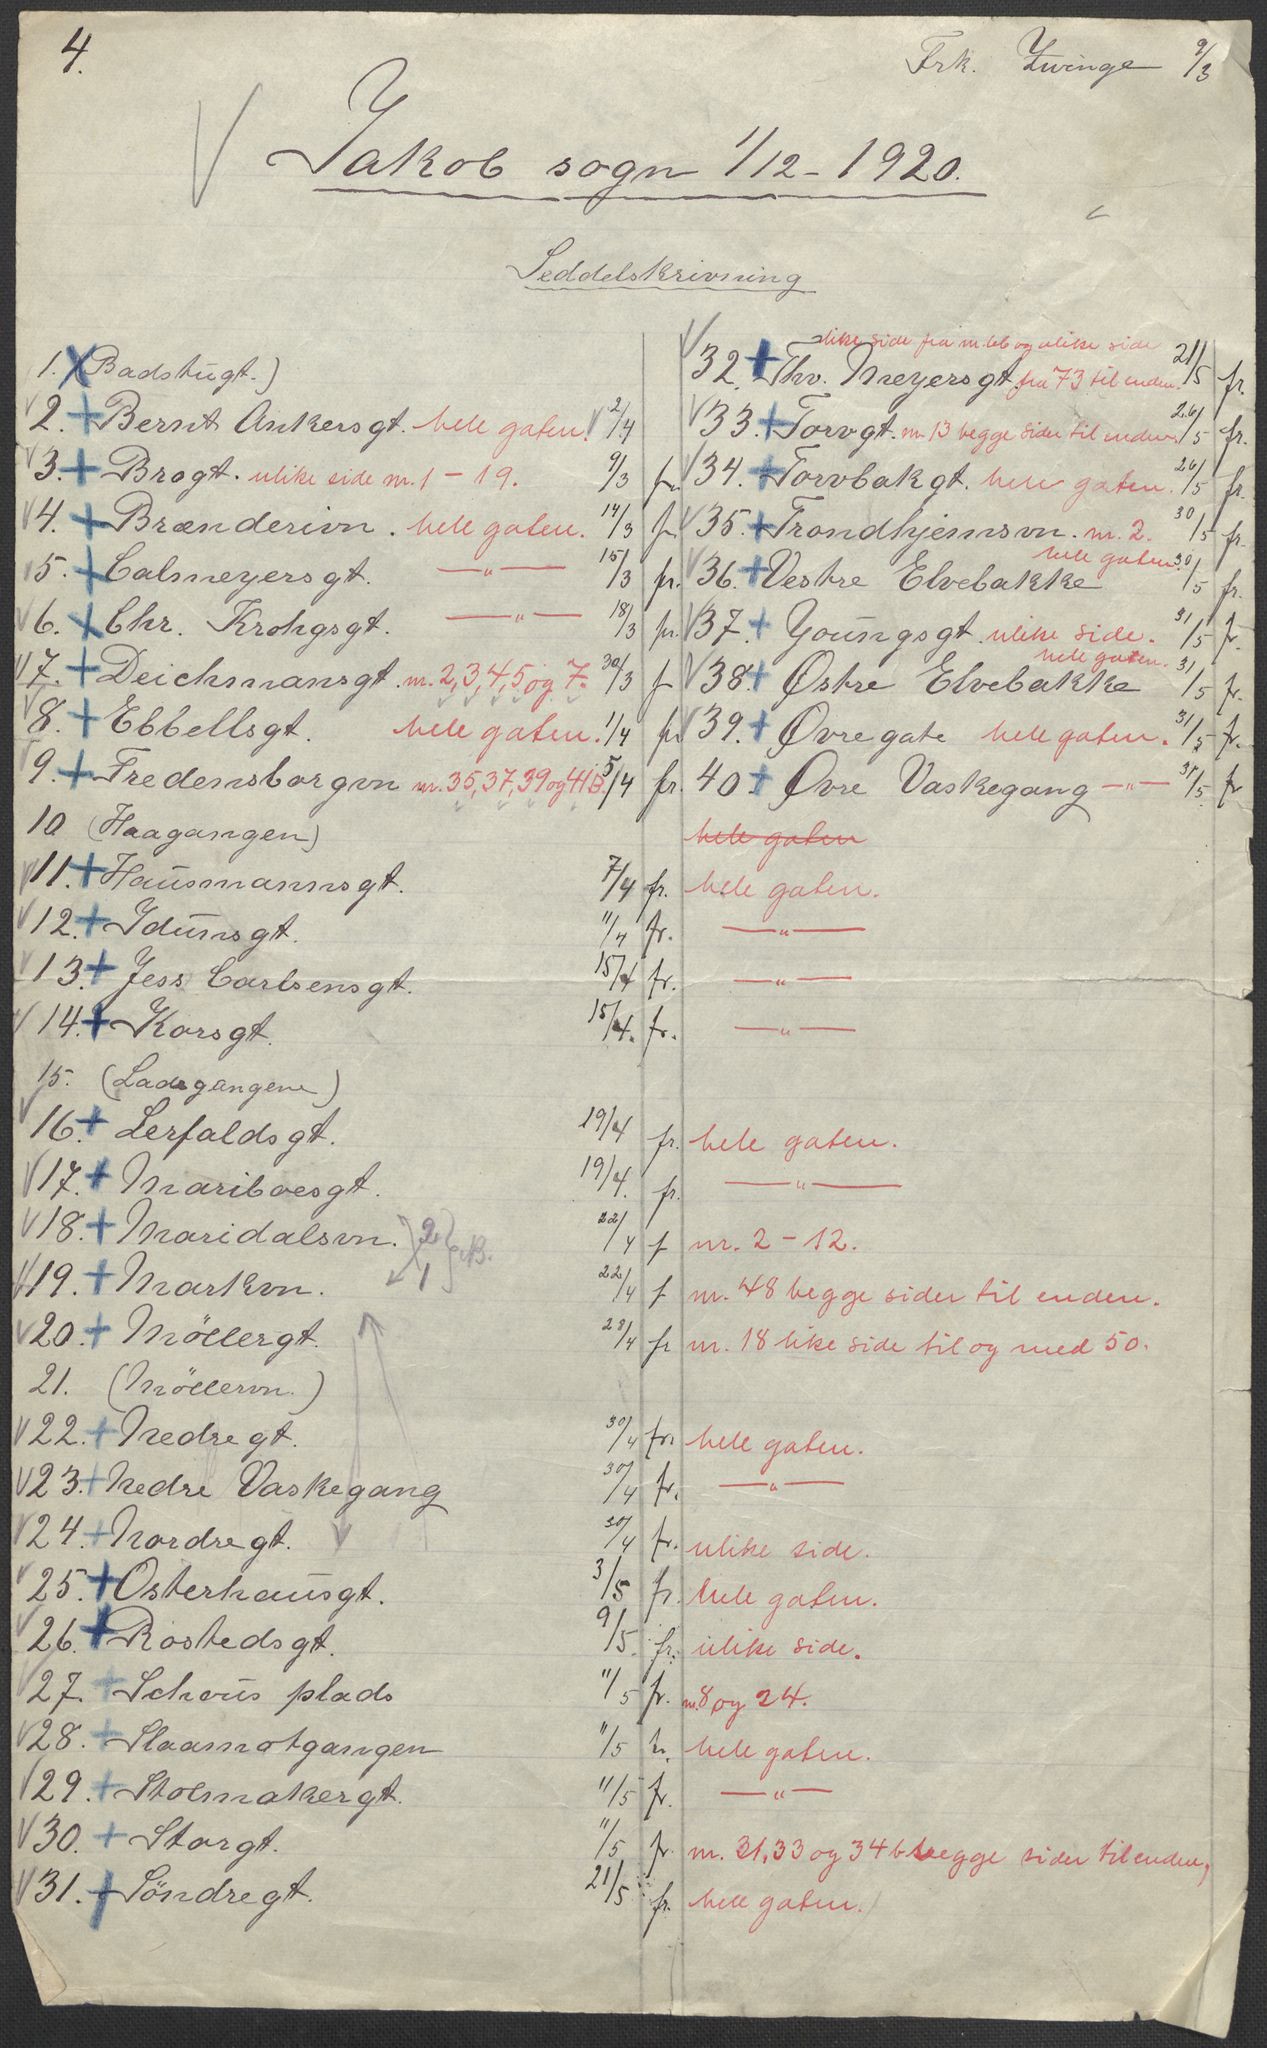 4.
Frk. Zwinge 9/3
Jakob sogn 1/12 - 1920.
Seddelskrivning
1. (Badstugt.)
2. Bernt Ankersgt. hele gaten. 2/4
3. Brogt. ulike side nr. 1 - 19. 9/3 fr.
4. Brænderivn. hele gaten. 14/3 fr.
5. Calmeyersgt. —„— 15/3 fr.
6. Chr. Krohgsgt. —„— 18/3 fr.
7. Deichmansgt. nr. 2, 3, 4, 5, og 7. 30/3 f
8. Ebbellsgt. hele gaten. 1/4 fr.
9. Fredensborgvn nr. 35, 37, 39 og 41B. 5/4 fr.
10 (Haagangen)
11. Hausmannsgt. 7/4 fr. hele gaten.
12. Idunsgt. 11/4 fr. —„—
13. Jess Carlsensgt. 15/4 fr. —„—
14. Korsgt. 15/4. fr. —„—
15. (Ladegangene)
16. Lerfaldsgt. 19/4 fr. hele gaten.
17. Mariboesgt. 19/4. fr. —„—
18. Maridalsvn. 2 22/4 f nr. 2 - 12.
19. Markvn. 1 22/4 f nr. 48 begge sider til enden.
20. Möllergt. 28/4 fr nr. 18 like side til og med 50.
21. (Möllervn.)
22. Nedregt. 30/4 fr. hele gaten.
23. Nedre Vaskegang 30/4 fr. —„—
24. Nordregt. 30/4 fr. ulike side.
25. Osterhausgt. 3/5 fr. hele gaten.
26. Rostedsgt. 9/5 fr. ulike side.
27. Schous plads 11/5 fr. nr. 8 og 24.
28. Slaamotgangen 11/5 fr. hele gaten.
29. Stolmakergt. 11/5 fr. —„—
30. Storgt. 11/5 fr. nr. 31, 33 og 34 b begge sider til enden,
31. Söndregt. 21/5 fr. hele gaten.
like side fra nr. og ulike side
32. Thv. Meyersgt. fra 73 til enden. 21/5 fr.
33. Torvgt. nr. 13 begge sider til enden. 26/5 fr.
34. Torvbakgt. hele gaten. 26/5 fr.
35. Trondhjemsvn. nr. 2. 30/5 fr.
36. Vestre Elvebakke hele gaten. 30/5 fr.
37. Youngsgt. ulike side. 31/5 fr.
38. Østre Elvebakke hele gaten. 31/5 fr.
39. Øvregate hele gaten. 31/5 fr.
40 Øvre Vaskegang —„— 31/5 fr
hele gaten